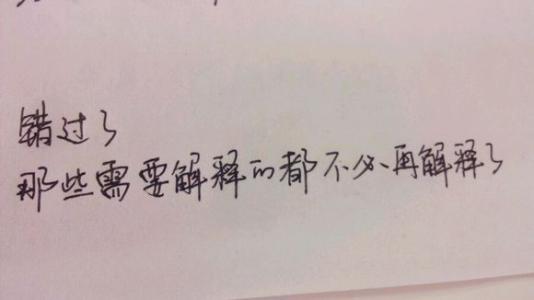 错过了
那些需要解释的都不必再解释了